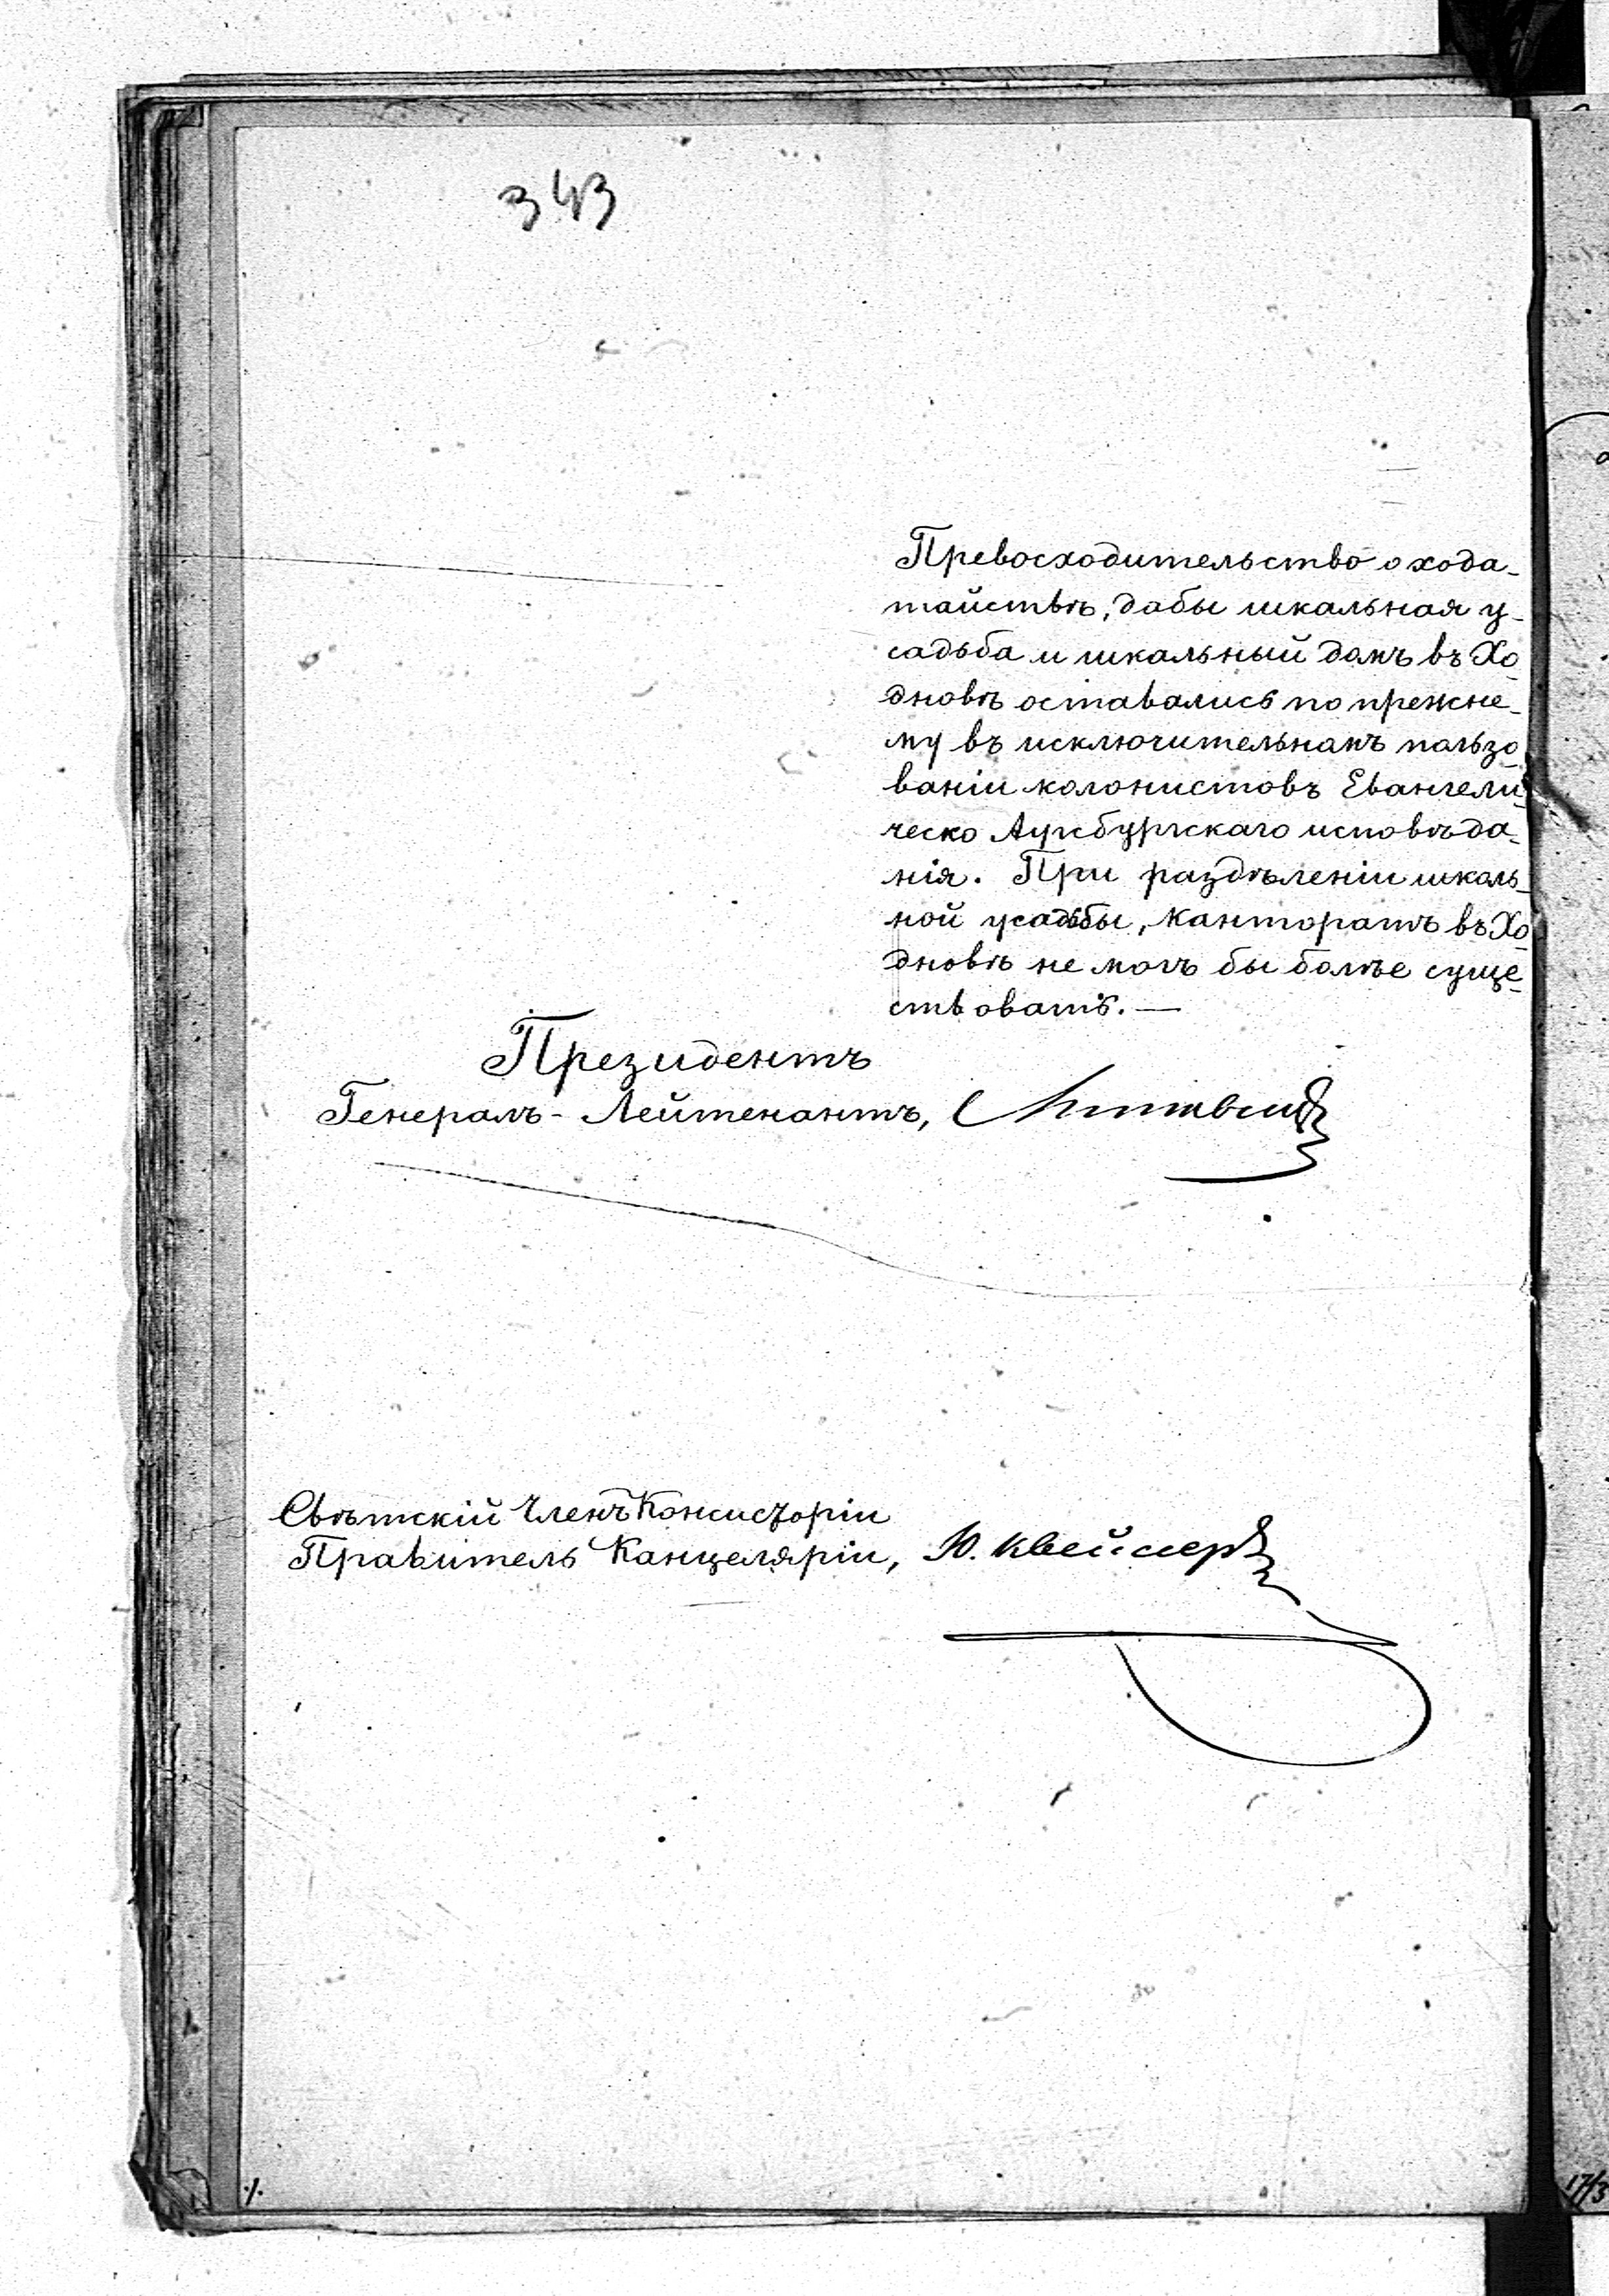 343
Превосходительство о хода-
тайствѣ, дабы школьная у-
садьба и школьный домъ въ Хо-
дновѣ оставались по прежне-
му въ исключительномъ пользо-
ваніи колонистовъ Евангели-
ческо Аугсбургскаго исповѣда-
нія. При раздѣленіи школь-
ной усадьбы, Канторатъ въ Хо-
дновѣ не могъ бы болѣе суще-
ствовать. —
Президентъ
Генералъ-Лейтенантъ,
Свѣтскій Членъ Консисторіи
Правитель Канцеляріи, Ю.
./.
17/3